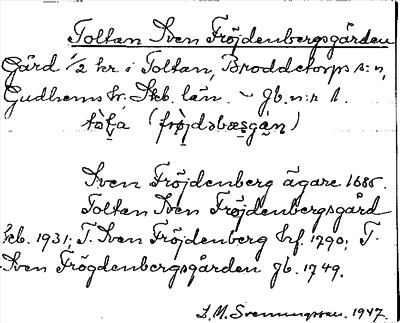 Toltan Sven Fröjdenbergsgården
Gård 1/2 kr i Toltan, Broddetorps s:n,
Gudhems hr. Skb. län. - Jb. n:r 1.
(frøjdsbæsgán)
Sven Fröjdenberg ägare 1685.
Toltan Sven Fröjdenbergsgård
kb. 1931; T. Sven Fröjdenberg hrf. 1790; T.
Sven Frögdenbergsgården Jb. 1749.
S. M. Svenningsson. 1947.